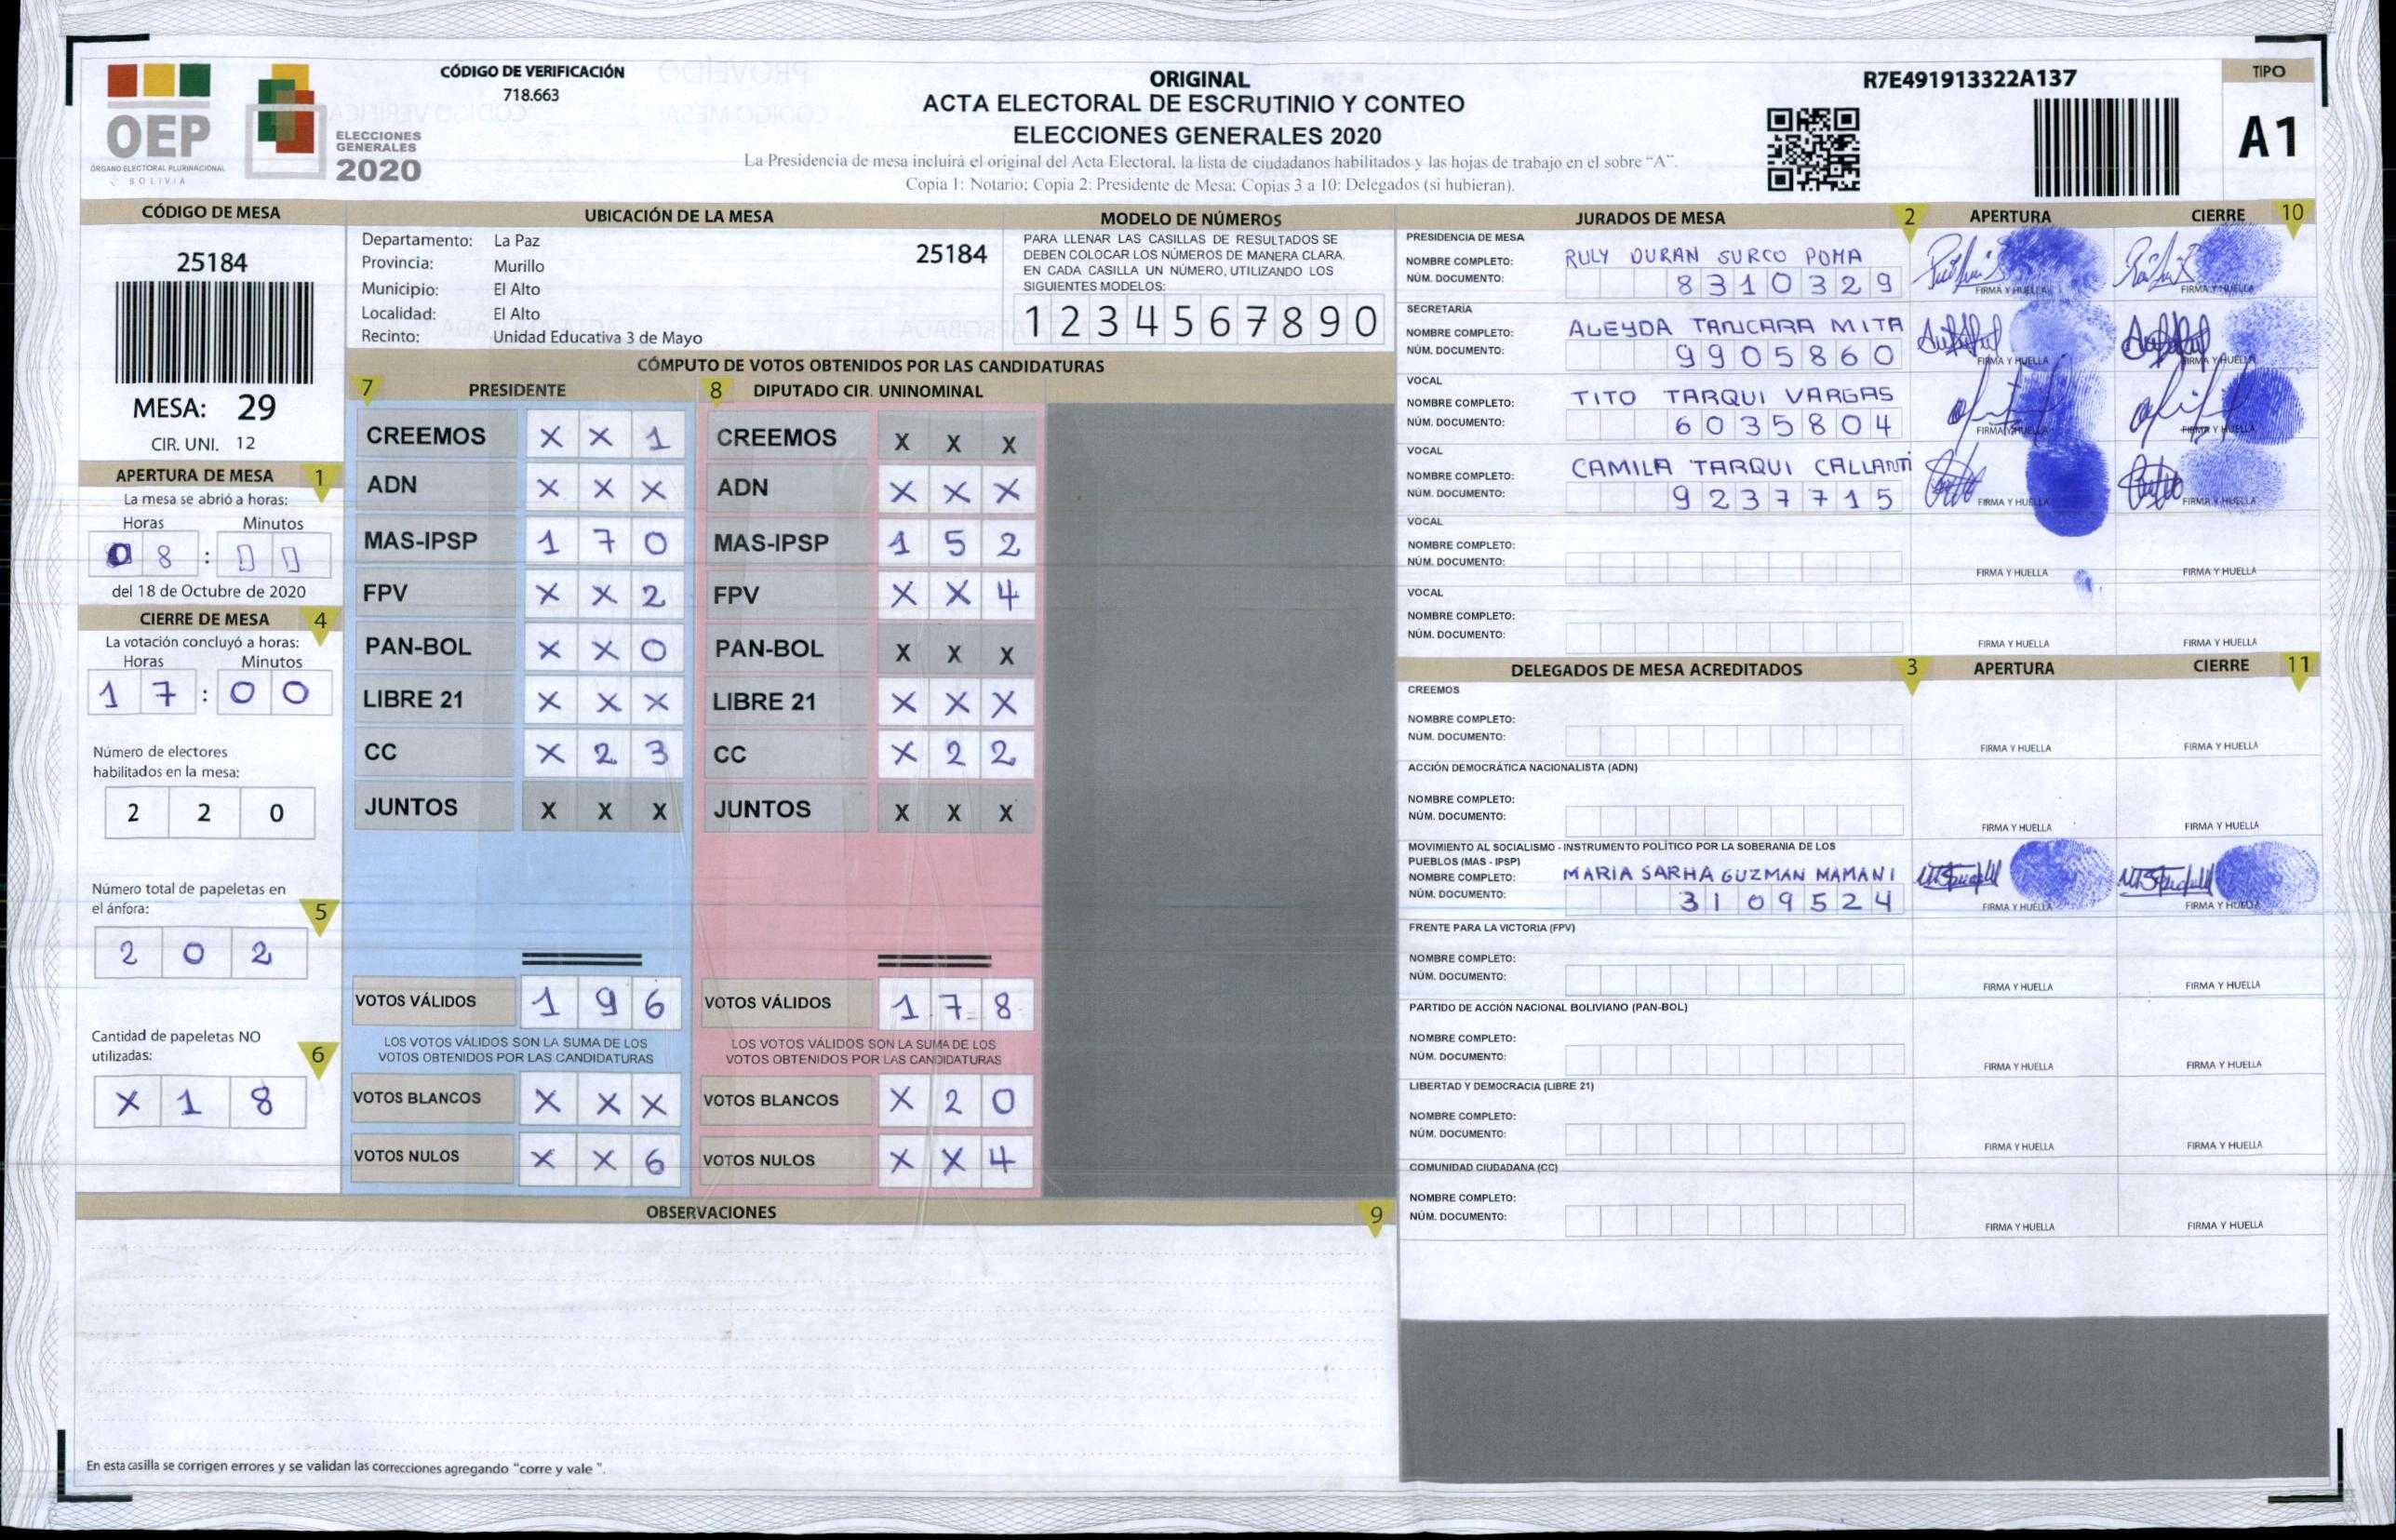 OEP
ÓRGANO ELECTORAL PLURINACIONAL
BOLIVIA
ELECCIONES
GENERALES
2020
CÓDIGO DE VERIFICACIÓN
718.663
ORIGINAL
ACTA ELECTORAL DE ESCRUTINIO Y CONTEO
ELECCIONES GENERALES 2020
La Presidencia de mesa incluirá el original del Acta Electoral, la lista de ciudadanos habilitados y las hojas de trabajo en el sobre "A".
Copia 1: Notario; Copia 2: Presidente de Mesa; Copias 3 a 10: Delegados (si hubieran).
R7E491913322A137
TIPO
A1
CÓDIGO DE MESA
25184
MESA: 29
CIR. UNI. 12
APERTURA DE MESA 1
La mesa se abrió a horas:
Horas Minutos
08 : 00
del 18 de Octubre de 2020
CIERRE DE MESA 4
La votación concluyó a horas:
Horas Minutos
17 : 00
Número de electores
habilitados en la mesa:
2 2 0
Número total de papeletas en
el ánfora: 5
2 0 2
Cantidad de papeletas NO
utilizadas: 6
X 1 8
UBICACIÓN DE LA MESA
Departamento: La Paz
25184
Provincia: Murillo
Municipio: El Alto
Localidad: El Alto
Recinto: Unidad Educativa 3 de Mayo
MODELO DE NÚMEROS
PARA LLENAR LAS CASILLAS DE RESULTADOS SE
DEBEN COLOCAR LOS NÚMEROS DE MANERA CLARA.
EN CADA CASILLA UN NÚMERO, UTILIZANDO LOS
SIGUIENTES MODELOS:
1 2 3 4 5 6 7 8 9 0
CÓMPUTO DE VOTOS OBTENIDOS POR LAS CANDIDATURAS
7 PRESIDENTE 8 DIPUTADO CIR. UNINOMINAL
CREEMOS X X 1 CREEMOS X X X
ADN X X X ADN X X X
MAS-IPSP 1 7 0 MAS-IPSP 1 5 2
FPV X X 2 FPV X X 4
PAN-BOL X X 0 PAN-BOL X X X
LIBRE 21 X X X LIBRE 21 X X X
CC X 2 3 CC X 2 2
JUNTOS X X X JUNTOS X X X
VOTOS VÁLIDOS 1 9 6 VOTOS VÁLIDOS 1 7 8
LOS VOTOS VÁLIDOS SON LA SUMA DE LOS LOS VOTOS VÁLIDOS SON LA SUMA DE LOS
VOTOS OBTENIDOS POR LAS CANDIDATURAS VOTOS OBTENIDOS POR LAS CANDIDATURAS
VOTOS BLANCOS X X X VOTOS BLANCOS X 2 0
VOTOS NULOS X X 6 VOTOS NULOS X X 4
OBSERVACIONES 9
En esta casilla se corrigen errores y se validan las correcciones agregando "corre y vale ".
JURADOS DE MESA 2 APERTURA CIERRE 10
PRESIDENCIA DE MESA
NOMBRE COMPLETO: RULY DURAN SURCO POMA
NÚM. DOCUMENTO: 8310329
FIRMA Y HUELLA FIRMA Y HUELLA
SECRETARÍA
NOMBRE COMPLETO: ALEYDA TANCARA MITA
NÚM. DOCUMENTO: 9905860
FIRMA Y HUELLA FIRMA Y HUELLA
VOCAL
NOMBRE COMPLETO: TITO TARQUI VARGAS
NÚM. DOCUMENTO: 6035804
FIRMA Y HUELLA FIRMA Y HUELLA
VOCAL
NOMBRE COMPLETO: CAMILA TARQUI CALLANTI
NÚM. DOCUMENTO: 9237715
FIRMA Y HUELLA FIRMA Y HUELLA
VOCAL
NOMBRE COMPLETO:
NÚM. DOCUMENTO:
FIRMA Y HUELLA FIRMA Y HUELLA
VOCAL
NOMBRE COMPLETO:
NÚM. DOCUMENTO:
FIRMA Y HUELLA FIRMA Y HUELLA
DELEGADOS DE MESA ACREDITADOS 3 APERTURA CIERRE 11
CREEMOS
NOMBRE COMPLETO:
NÚM. DOCUMENTO:
FIRMA Y HUELLA FIRMA Y HUELLA
ACCIÓN DEMOCRÁTICA NACIONALISTA (ADN)
NOMBRE COMPLETO:
NÚM. DOCUMENTO:
FIRMA Y HUELLA FIRMA Y HUELLA
MOVIMIENTO AL SOCIALISMO - INSTRUMENTO POLÍTICO POR LA SOBERANIA DE LOS
PUEBLOS (MAS - IPSP)
NOMBRE COMPLETO: MARIA SARHA GUZMAN MAMANI
NÚM. DOCUMENTO: 3109524
FIRMA Y HUELLA FIRMA Y HUELLA
FRENTE PARA LA VICTORIA (FPV)
NOMBRE COMPLETO:
NÚM. DOCUMENTO:
FIRMA Y HUELLA FIRMA Y HUELLA
PARTIDO DE ACCIÓN NACIONAL BOLIVIANO (PAN-BOL)
NOMBRE COMPLETO:
NÚM. DOCUMENTO:
FIRMA Y HUELLA FIRMA Y HUELLA
LIBERTAD Y DEMOCRACIA (LIBRE 21)
NOMBRE COMPLETO:
NÚM. DOCUMENTO:
FIRMA Y HUELLA FIRMA Y HUELLA
COMUNIDAD CIUDADANA (CC)
NOMBRE COMPLETO:
NÚM. DOCUMENTO:
FIRMA Y HUELLA FIRMA Y HUELLA